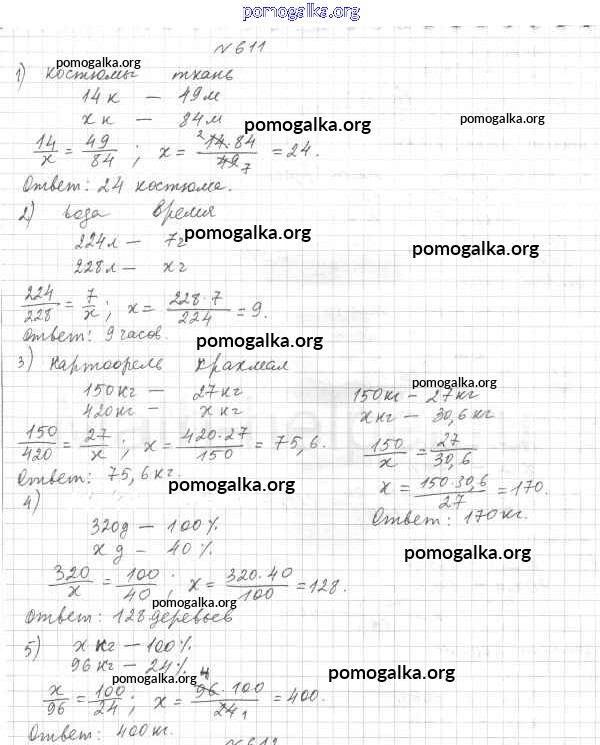 pomogalka.org
№611
1) костюмы ткань
pomogalka.org
14 к — 49 м
x к — 84 м
pomogalka.org
pomogalka.org
14/x = 49/84 ; x = 14·84/49 = 24.
2 7
Ответ: 24 костюма.
2) вода время
224 л — 7 г
pomogalka.org
228 л — x г
pomogalka.org
224/228 = 7/x ; x = 228·7/224 = 9.
Ответ: 9 часов.
pomogalka.org
3) картофель крахмал
150 кг — 27 кг
420 кг — x кг
150/420 = 27/x ; x = 420·27/150 = 75,6.
Ответ: 75,6 кг.
pomogalka.org
150 кг — 27 кг
x кг — 30,6 кг
150/x = 27/30,6
x = 150·30,6/27 = 170.
Ответ: 170 кг.
pomogalka.org
4)
320 д — 100%
x д — 40%
pomogalka.org
320/x = 100/40 ; x = 320·40/100 = 128.
pomogalka.org
Ответ: 128 деревьев
5) x кг — 100%
96 кг — 24%
pomogalka.org
pomogalka.org
x/96 = 100/24 ; x = 96·100/24 = 400.
4 1
Ответ: 400 кг.
№612